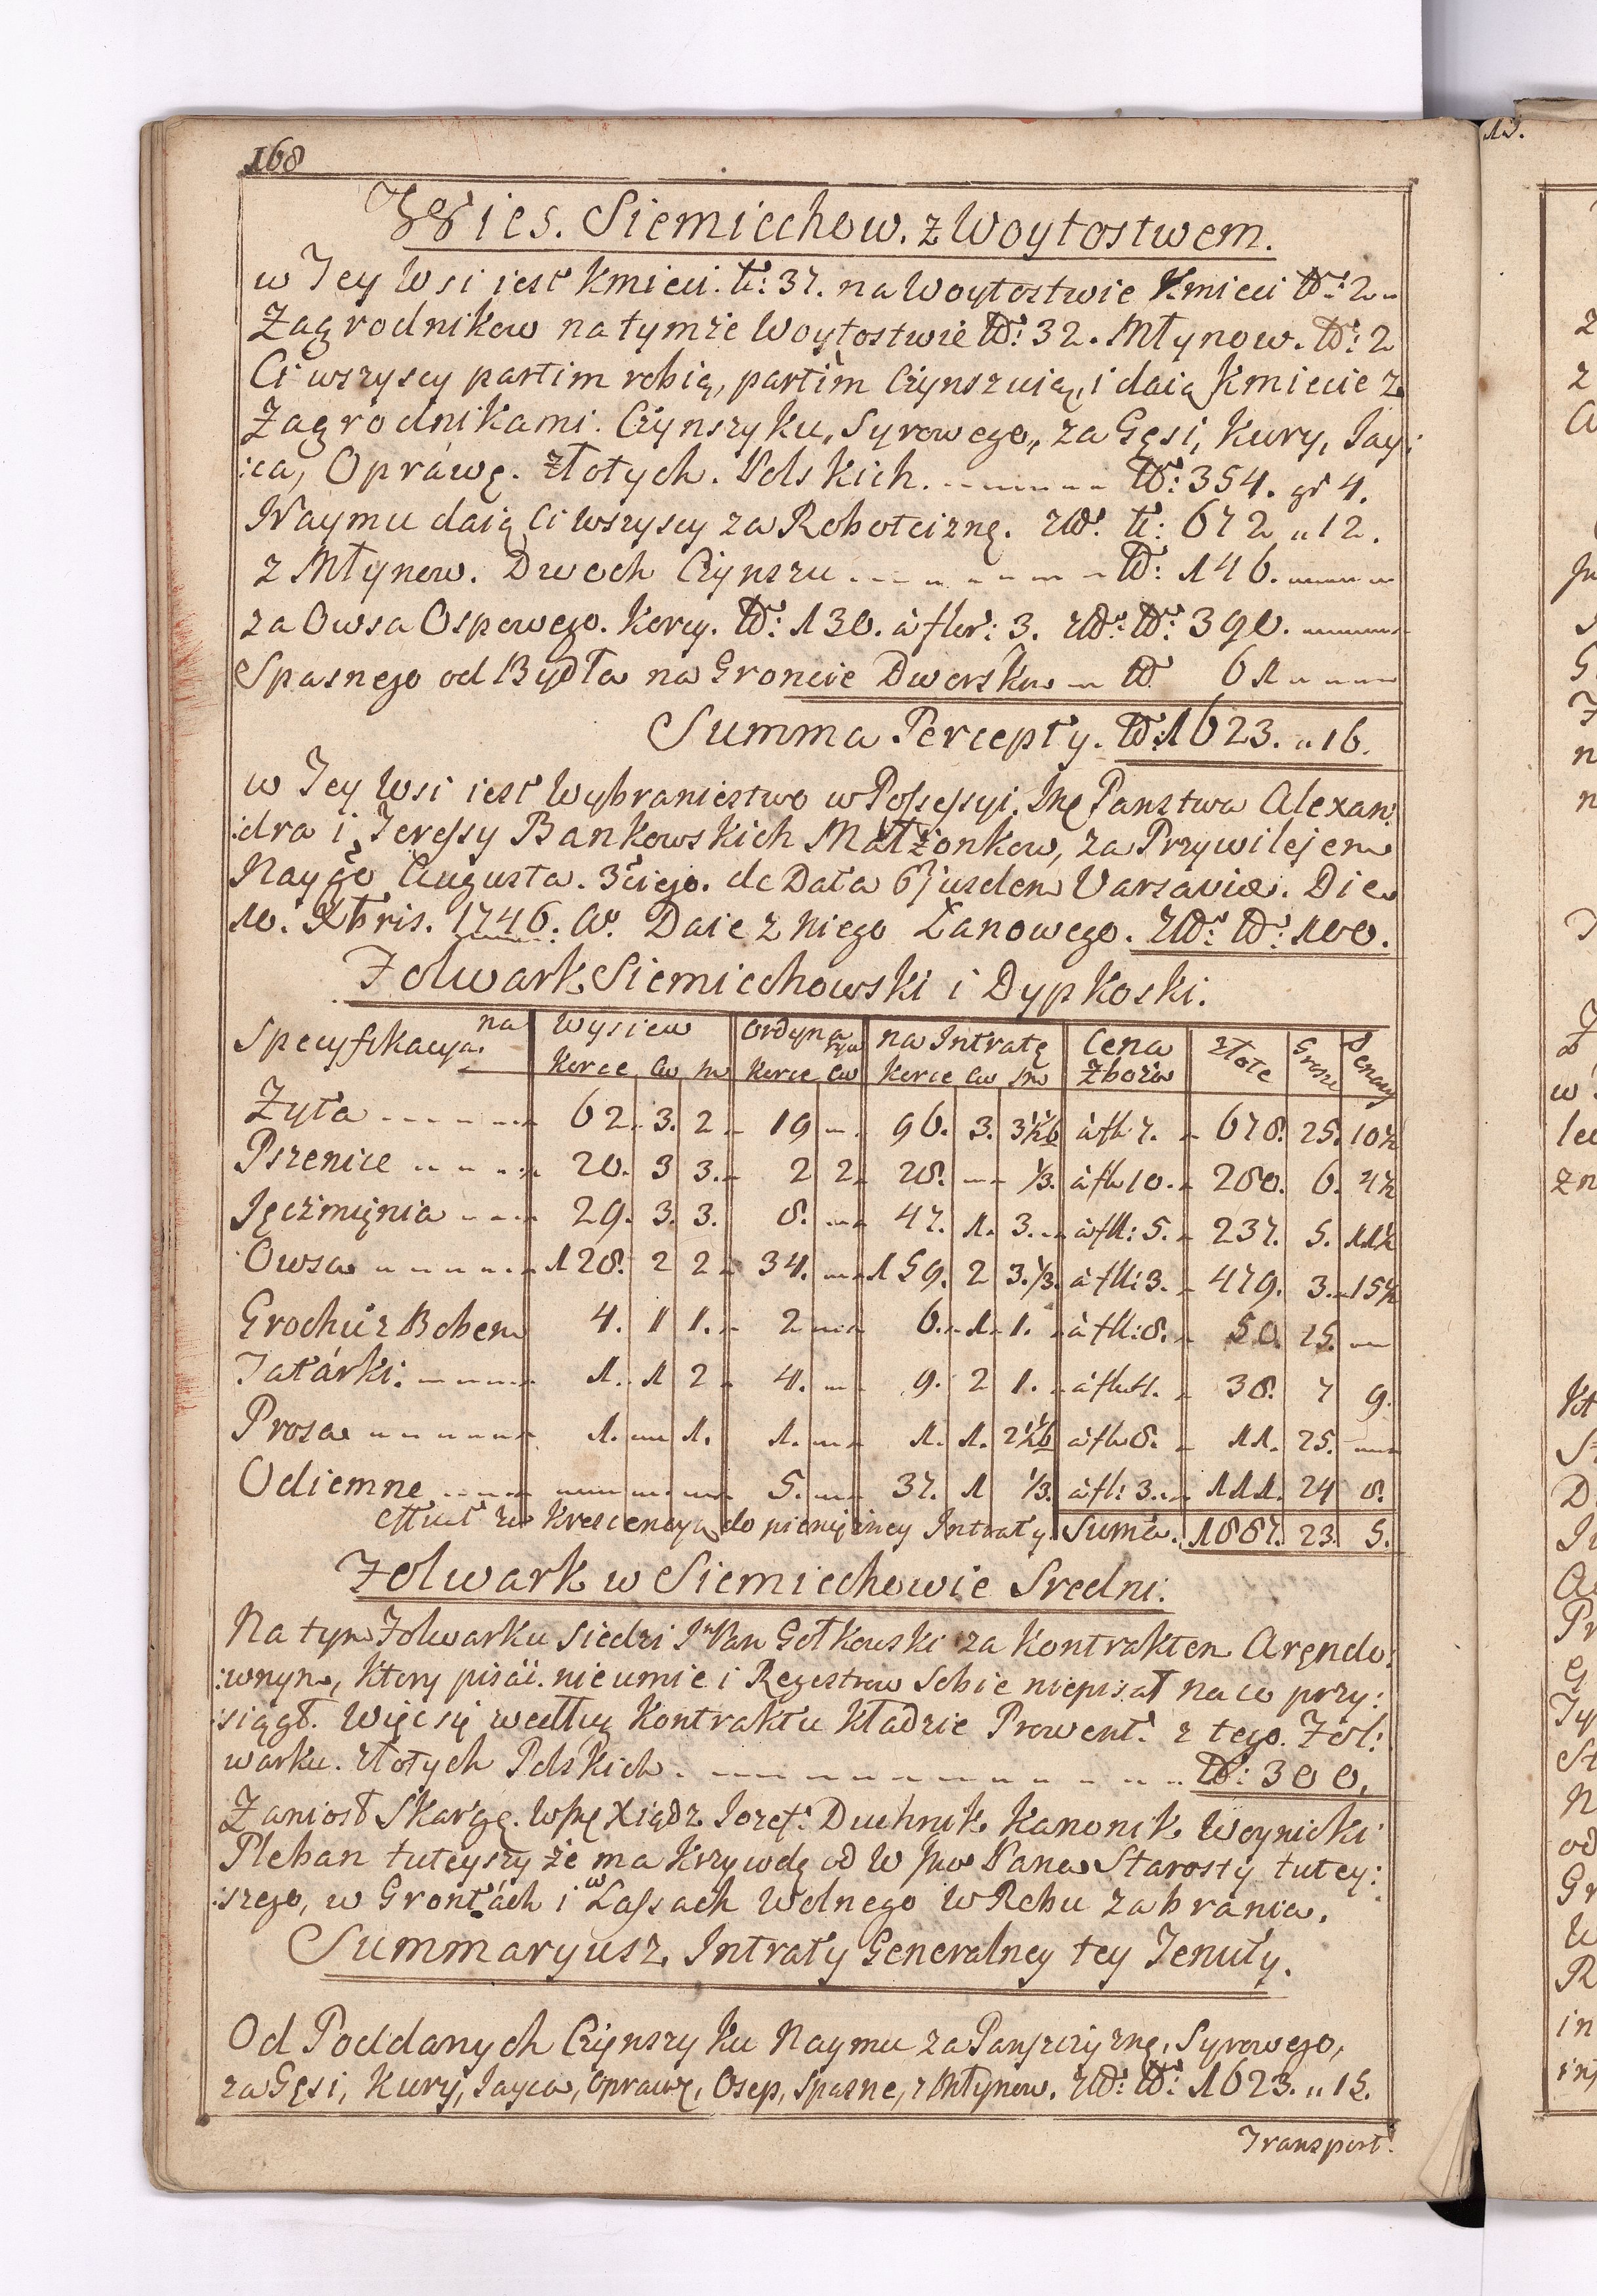 168
Wies. Siemiechow. z Woytostwem.
w Tey Wsi iest Kmieci. Nr: 37. na Woytostwie Kmieci Nr: 2
Zagrodnikow na tymże Woytostwie Nr: 32. Młynow. Nr: 2
Ci wszyscy partim robią, partim Czynszuią, i daią Kmiecie z
Zagrodnikami. Czynszyku, Syrowego, za Gęsi, Kury, Jay:
:ca, Opráwę. złotych. Polskich. Nr: 354. gr 4.
Naymu daią Ci wszyscy za Robociznę. Nr: 672 „ 12.
z Młynow. Dwoch Czynszu Nr: 146.
za Owsa Ospowego. Korcy. Nr: 130. à flor: 3. Nr: 390.
Spasnego od Bydła na Groncie Dworskim Nr 61
Summa Percepty. Nr: 1623. „ 16.
w Tey Wsi iest Wybraniestwo w Possessyi. Panstwa Alexan:
:dra i Teressy Bankowskich Małżonkow, za Przywilejem
Augusta. 3ciego. de Data Varsaviæ. Die
10. Xbris. 1746. Daie z niego Łanowego. Nr: 100.
Folwark Siemiechowski i Dypkoski.
Specyfikacya na | Wysiew | Ordynarya | na Intratę | Cena Zboża | złote | Grosze | Denary
Korce Cw m | Korce Cw | Korce Cw m
Zyta 62. 3. 2 19 96. 3. 3 à fl 7. 678. 25. 10½
Pszenice 20. 3 3. 2 2 28. ⅓. à fl 10. 280. 6. 4½
Jęczmięnia 29. 3. 3. 8. 47. 1. 3. à fl: 5. 237. 5. 11½
Owsa 128. 2 2 34. 159. 2 3.⅓. à fl: 3. 479. 3. 15½
Grochu z Bobem 4. 1 1. 2 6. 1. 1. à fl: 8. 50. 25.
Tatárki: 1. 1 2 4. 9. 2 1. à fl 4. 38. 7 9.
Prosa 1. 1. 1. 1. 1. 2 à fl 8. 11. 25.
Odiemne 5. 37. 1 ⅓. à fl: 3. 111. 24 8.
Krescencya do pieniężney Intraty. Suma. 1887. 23. 5.
Folwark w Siemiechowie Sredni.
Na tym Folwarku siedzi Pan Gołkowski za Kontraktem Aręndo:
:wnym, ktory pisái. nieumie i Regestrow Sobie niepisał na co przy:
:siągł. Więc się według Kontraktu kładzie Prowent. z tego. Fol:
warku. złotych Polskich. Nr: 300.
Zaniosł Skargę. Xiądz Jozef. Duchnik Kanonik Woynicki
Pleban tuteyszy że ma krzywdę od W Jmc Pana Starosty tutey:
:szego, w Grontách i w Lassach Wolnego w Rębu zabrania.
Summaryusz Intraty Generalney tey Tenuty.
Od Poddanych Czynszyku Naymu za Panszczyznę, Syrowego,
za Gęsi, Kury, Jayca, oprawę, Osep, Spasne, z Młynow. Nr: 1623. „ 15.
Transport.